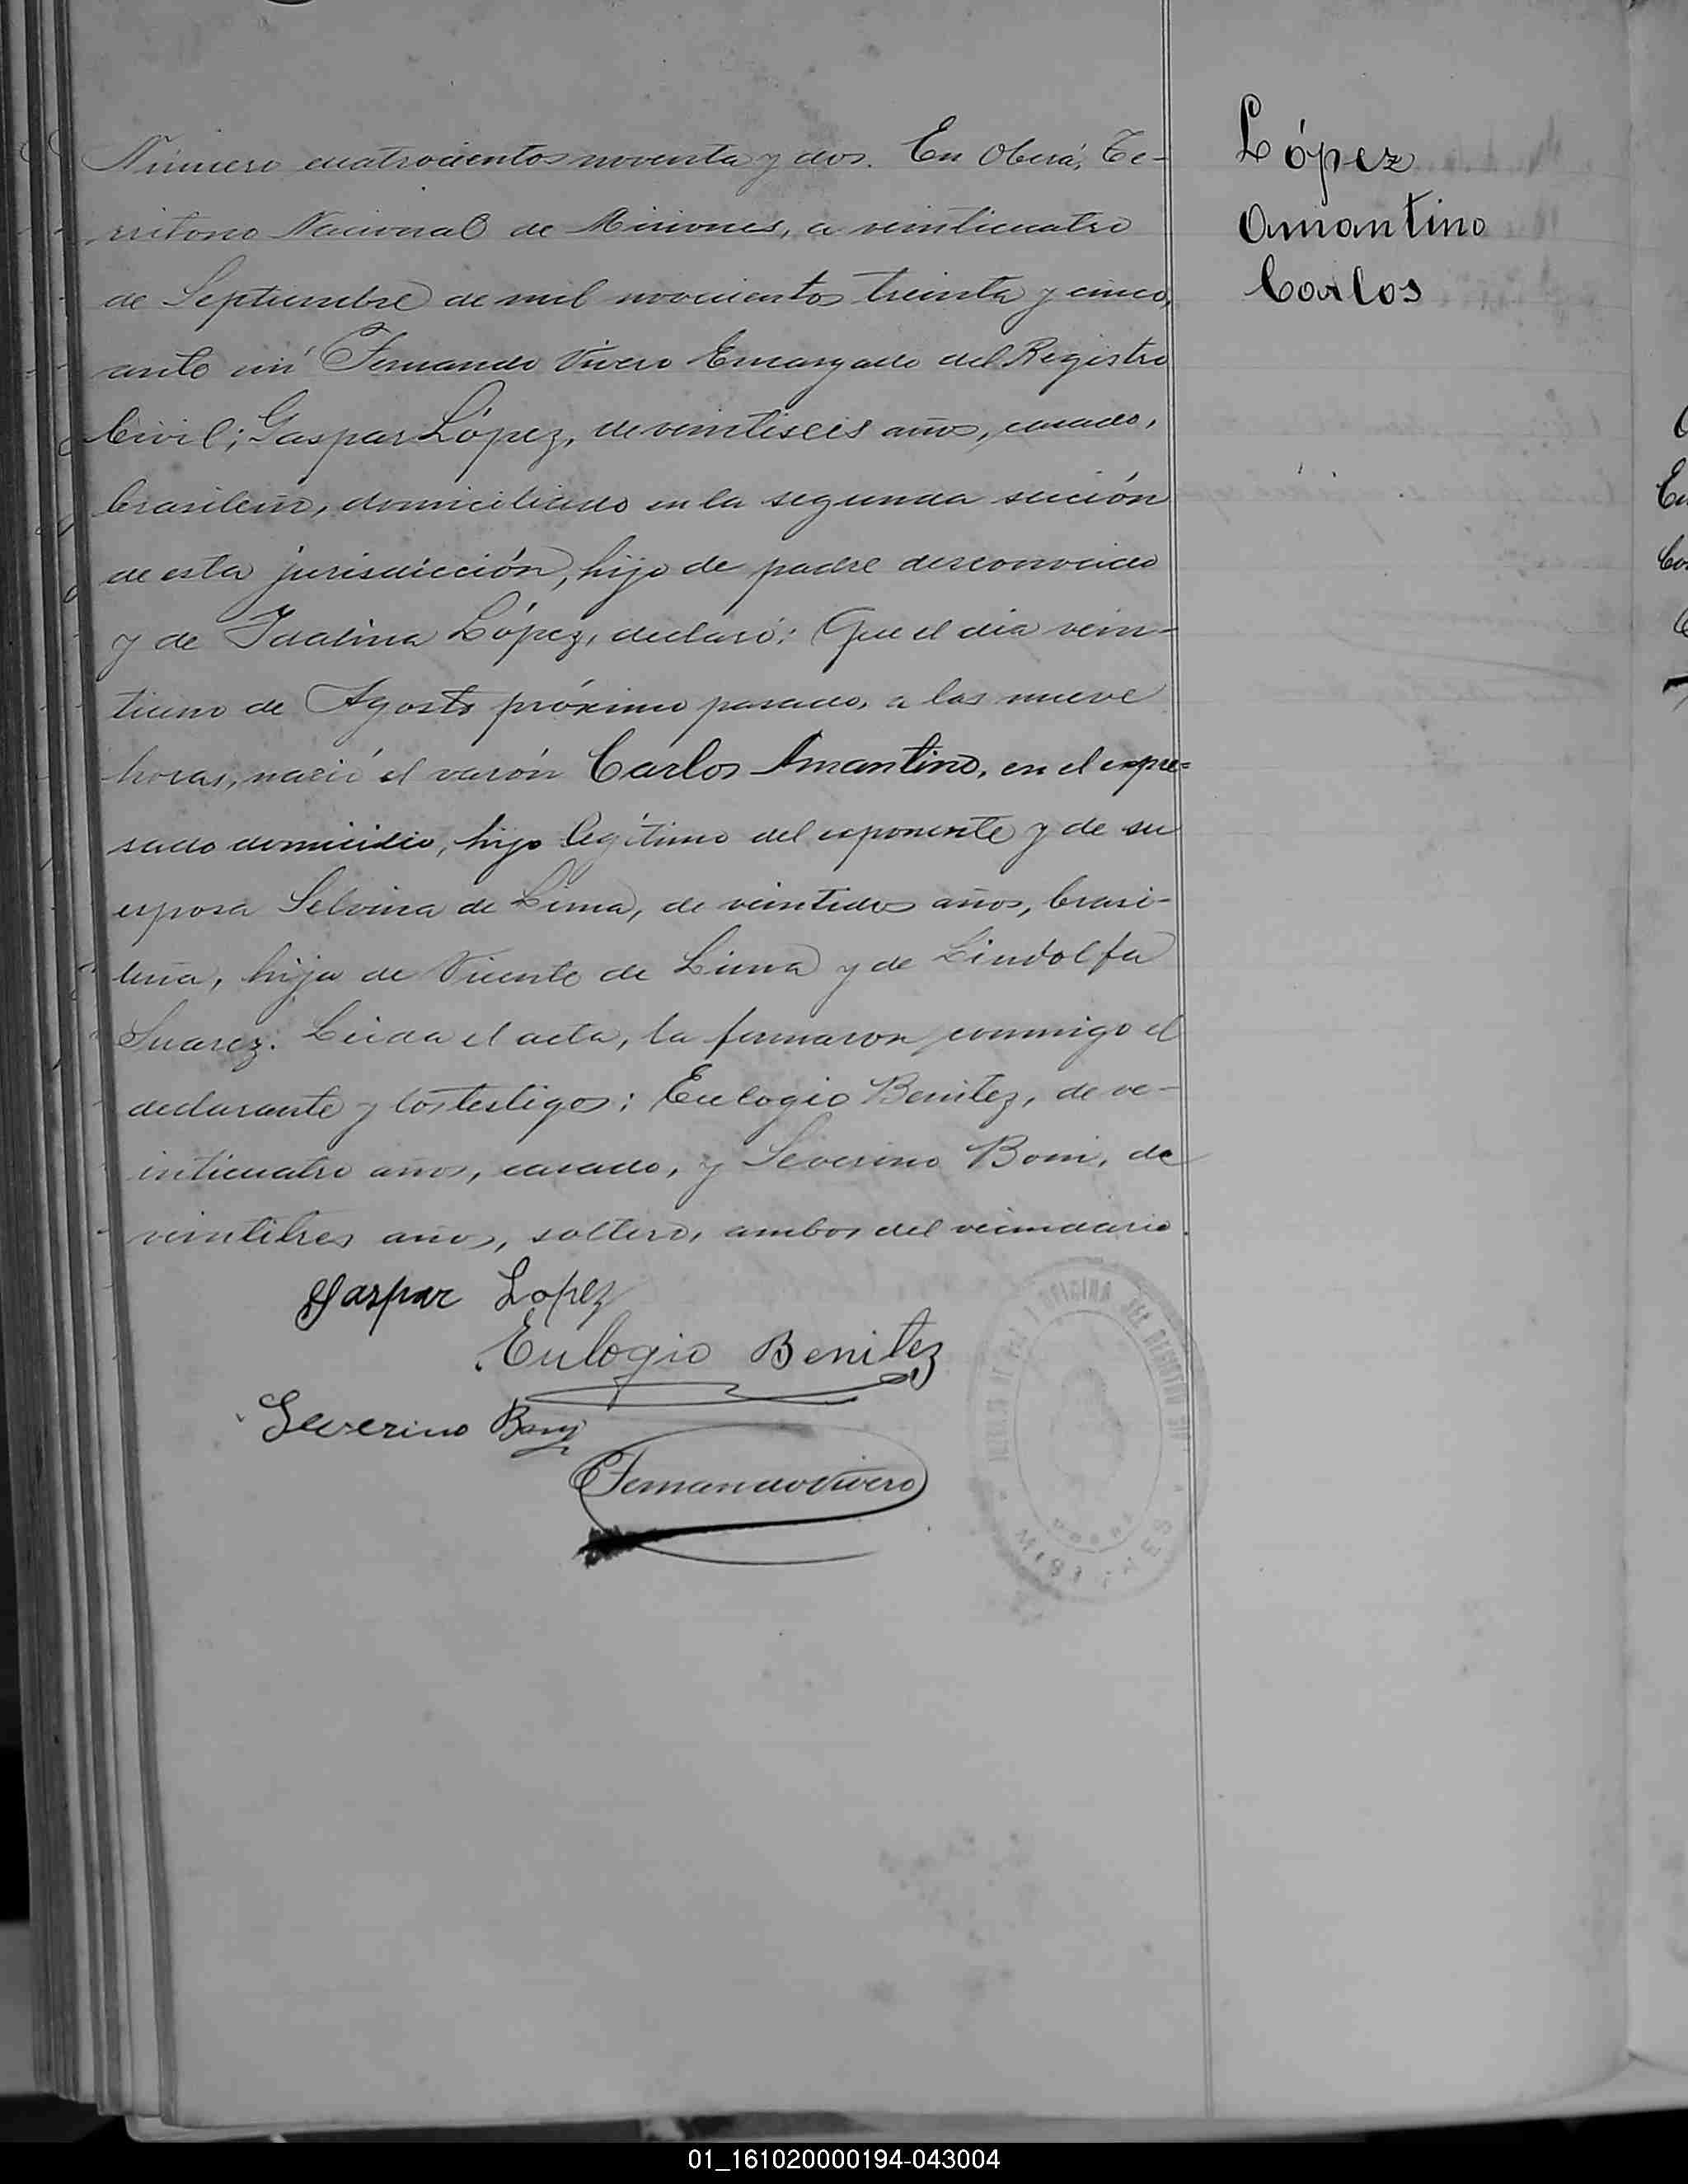 Número cuatrocientos noventa y dos. En Oberá, Te-
rritorio Nacional de Misiones, a veinticuatro
de Septiembre de mil novecientos treinta y cinco,
ante mí Fernando Vivero Encargado del Registro
Civil; Gaspar López, de veintiseis años, casado,
brasilero, domiciliado en la segunda sección
de esta jurisdicción, hijo de padre desconocido
y de Idalina López, declaró: Que el día vein-
tiuno de Agosto próximo pasado, a las nueve
horas, nació el varón Carlos Amantino, en el expre-
sado domicilio, hijo legítimo del exponente y de su
esposa Selvina de Lima, de veintidos años, brasi-
leña, hija de Vicente de Lima y de Lindolfa
Suarez. Leída el acta, la firmaron conmigo el
declarante y los testigos: Eulogio Benitez, de ve-
inticuatro años, casado, y Severino Boni, de
veintitres años, soltero, ambos del vecindario.
Gaspar Lopez
Eulogio Benitez
Severino
Fernando Vivero
López
Amantino
Carlos
OFICINA DEL REGISTRO
MISIONES
01_161020000194-043004